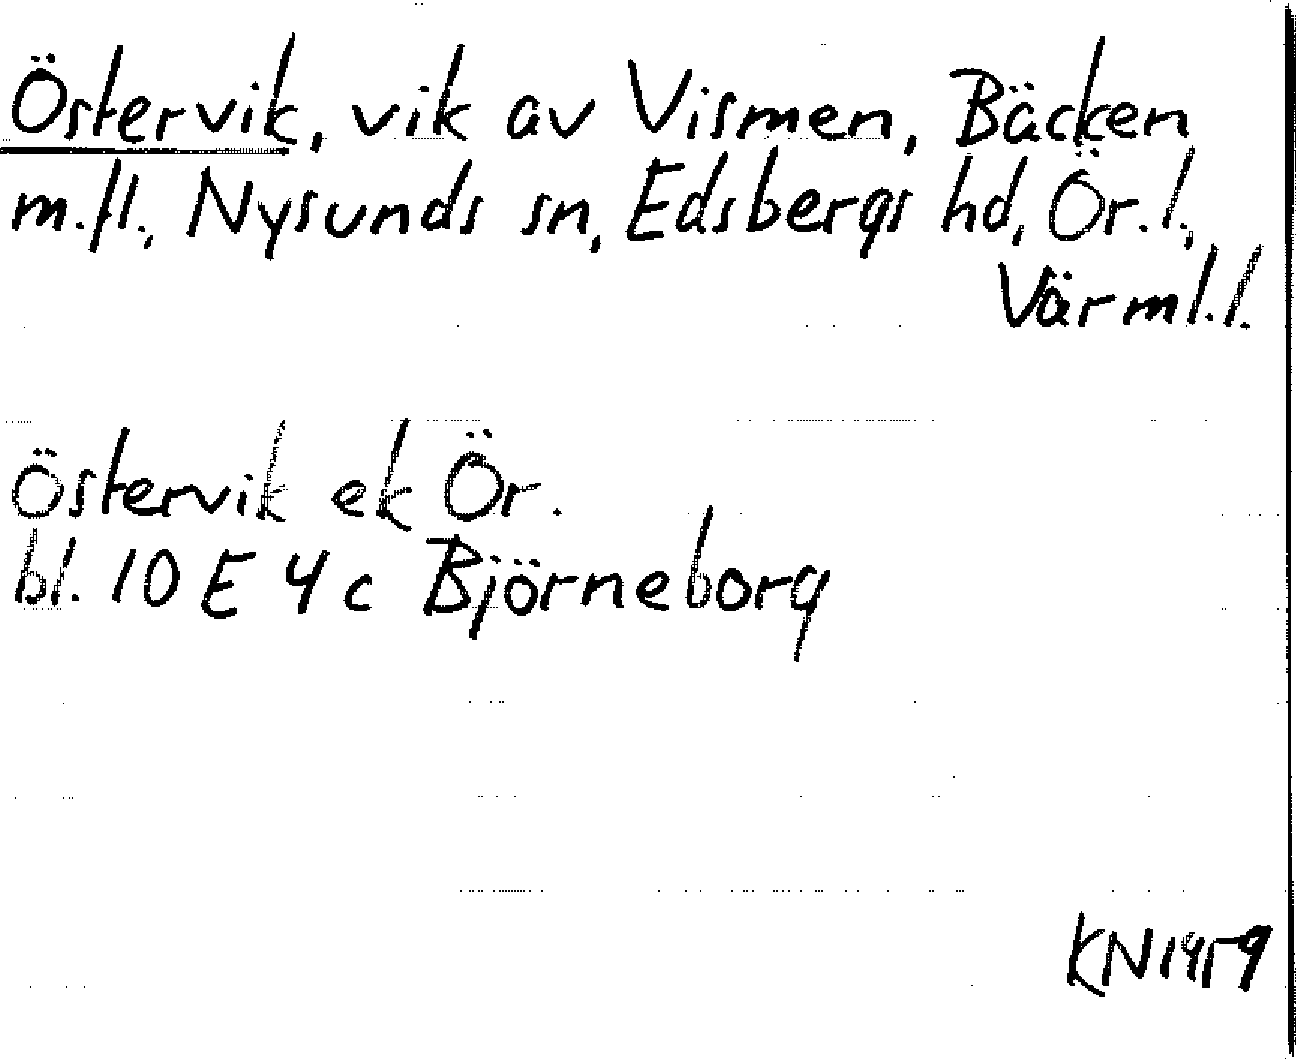 Östervik, vik av Vismen, Bäcken
m.fl., Nysunds sn, Edsbergs hd, Ör.l.,
Värml.l.
Östervik ek Ör.
bl. 10 E 4 c Björneborg
KN1459